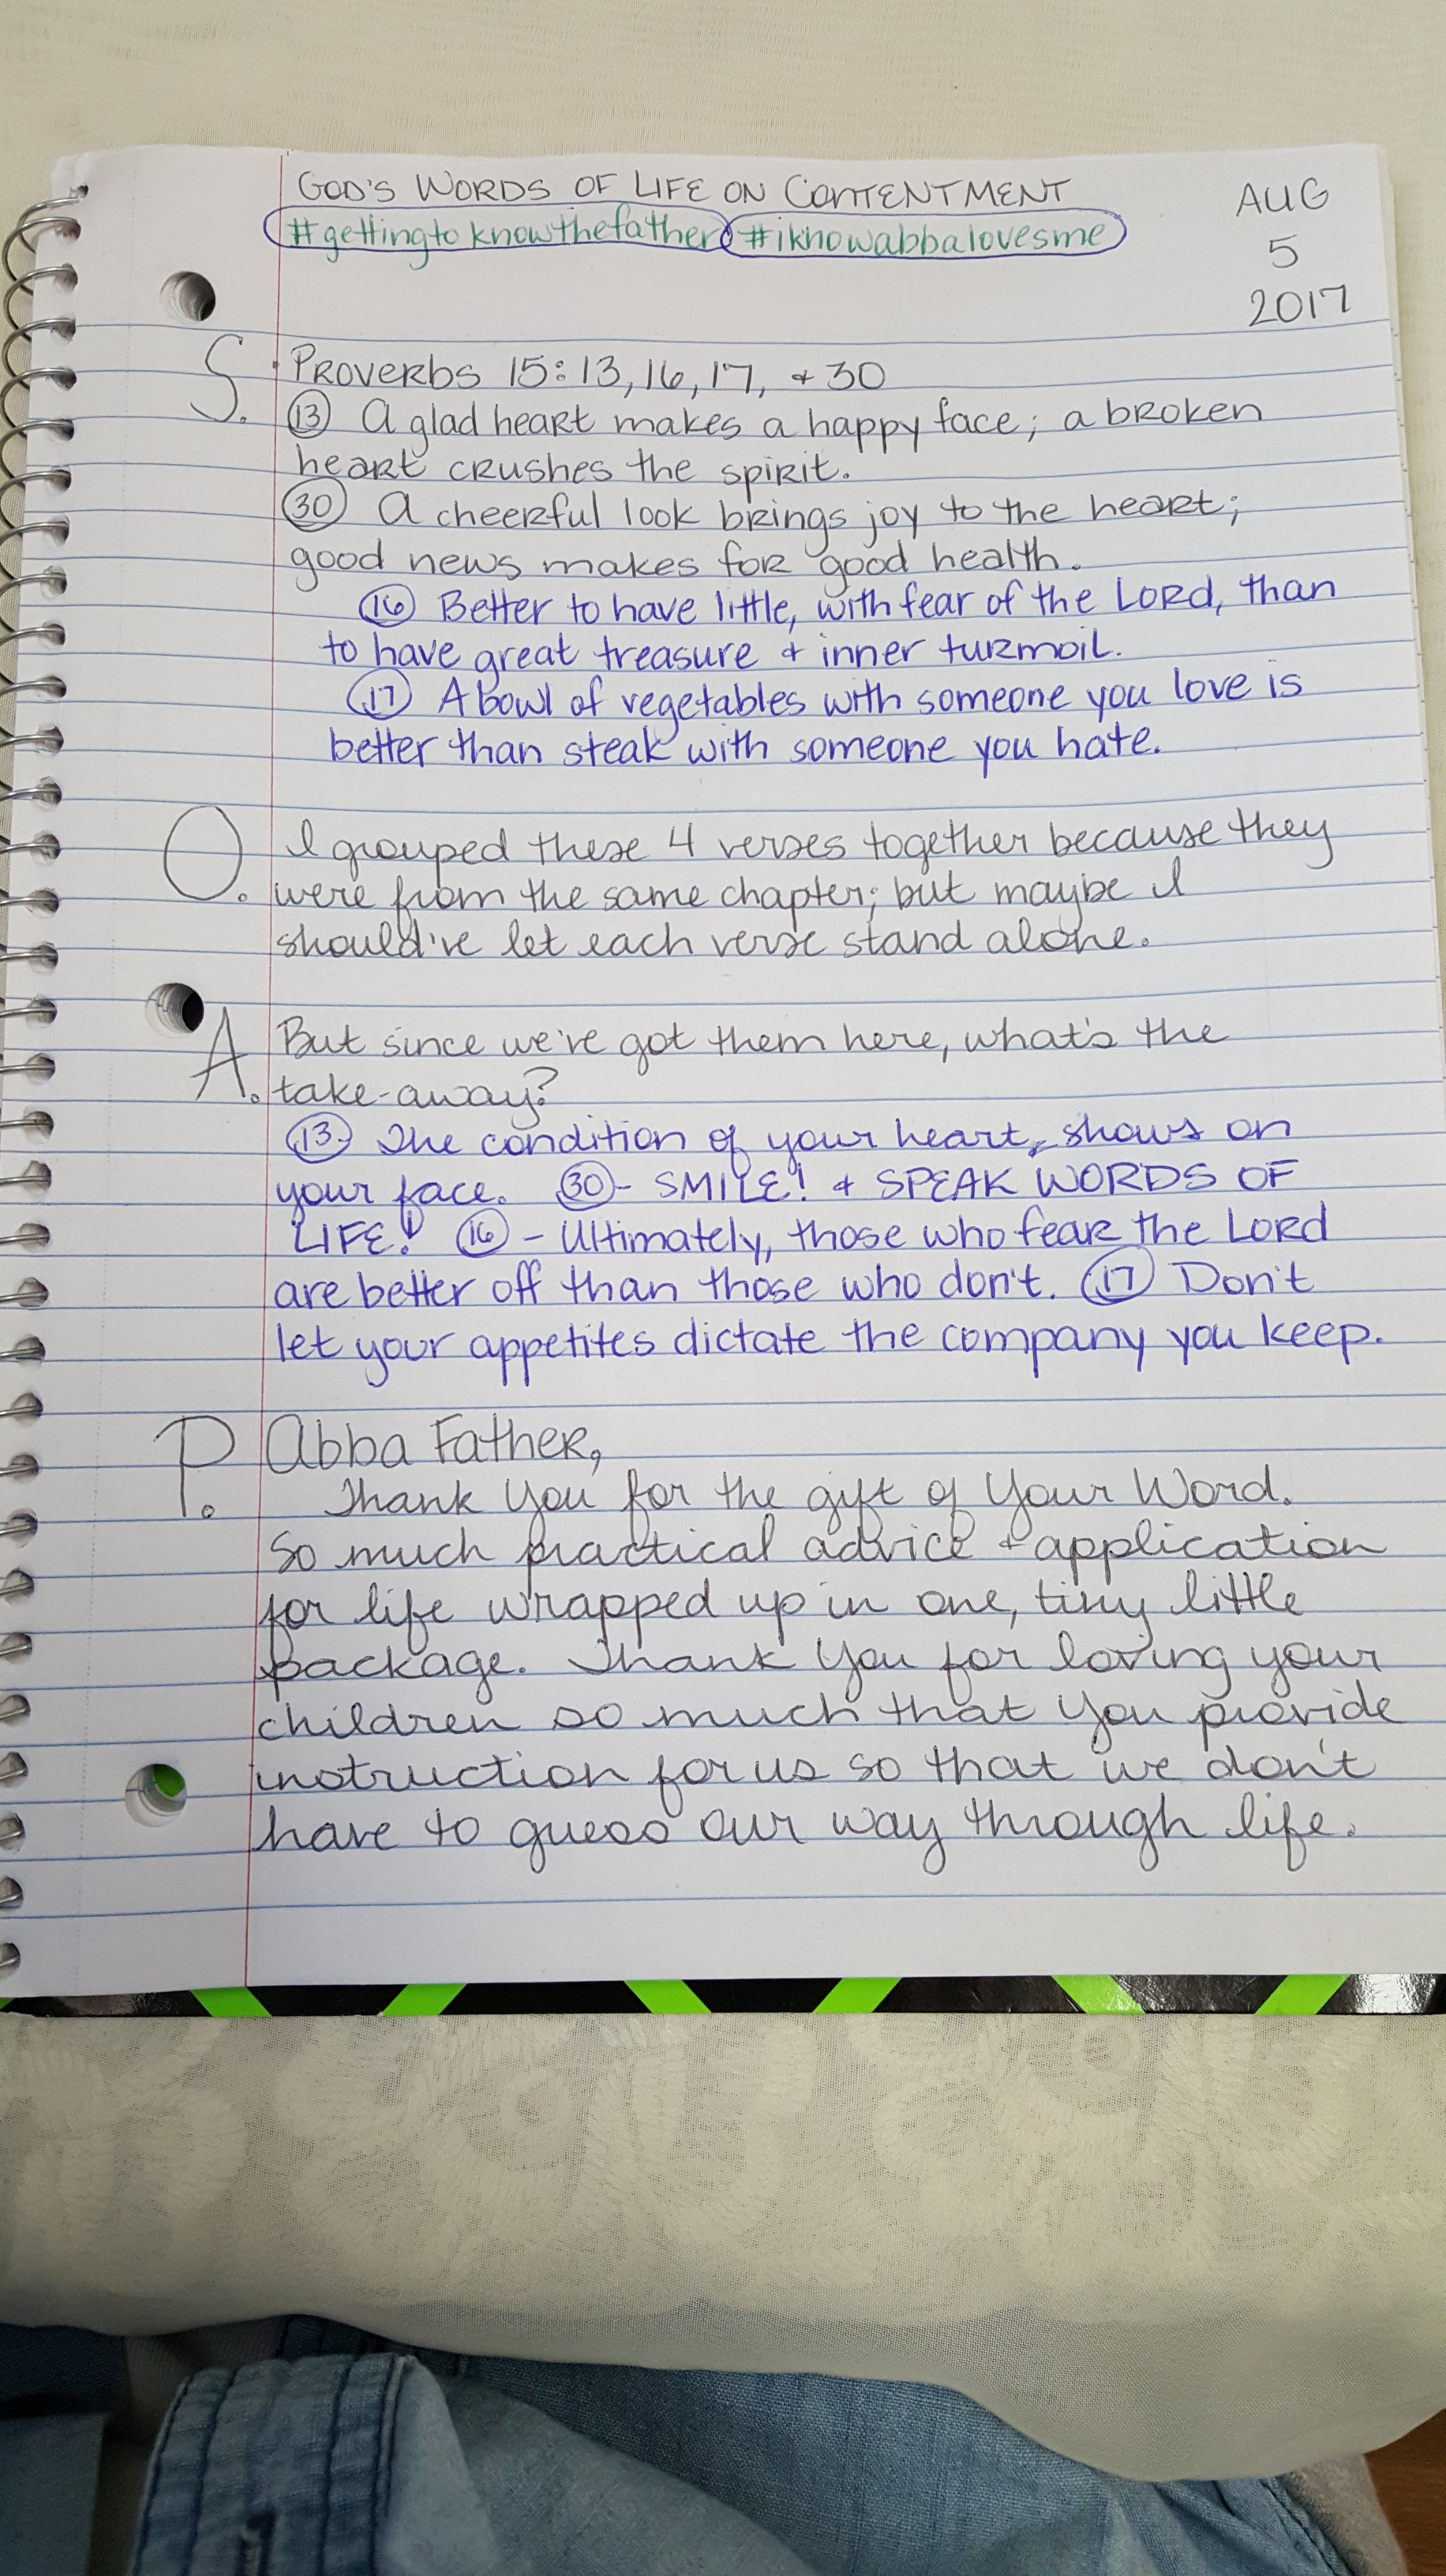 GOD'S WORDS OF LIFE ON CONTENTMENT
#gettingtoknowthefather #iknowabbalovesme
AUG
5
2017
S. Proverbs 15:13, 16, 17, + 30
13 A glad heart makes a happy face; a broken
heart crushes the spirit.
30 A cheerful look brings joy to the heart;
good news makes for good health.
16 Better to have little, with fear of the Lord, than
to have great treasure + inner turmoil.
17 A bowl of vegetables with someone you love is
better than steak with someone you hate.
O. I grouped these 4 verses together because they
were from the same chapter; but maybe I
should've let each verse stand alone.
A. But since we've got them here, what's the
take-away?
13. The condition of your heart, shows on
your face. 30- SMILE! + SPEAK WORDS OF
LIFE! 16 - Ultimately, those who fear the Lord
are better off than those who don't. 17 Don't
let your appetites dictate the company you keep.
P. Abba Father,
Thank You for the gift of Your Word.
So much practical advice + application
for life wrapped up in one, tiny little
package. Thank You for loving your
children so much that You provide
instruction for us so that we don't
have to guess our way through life.